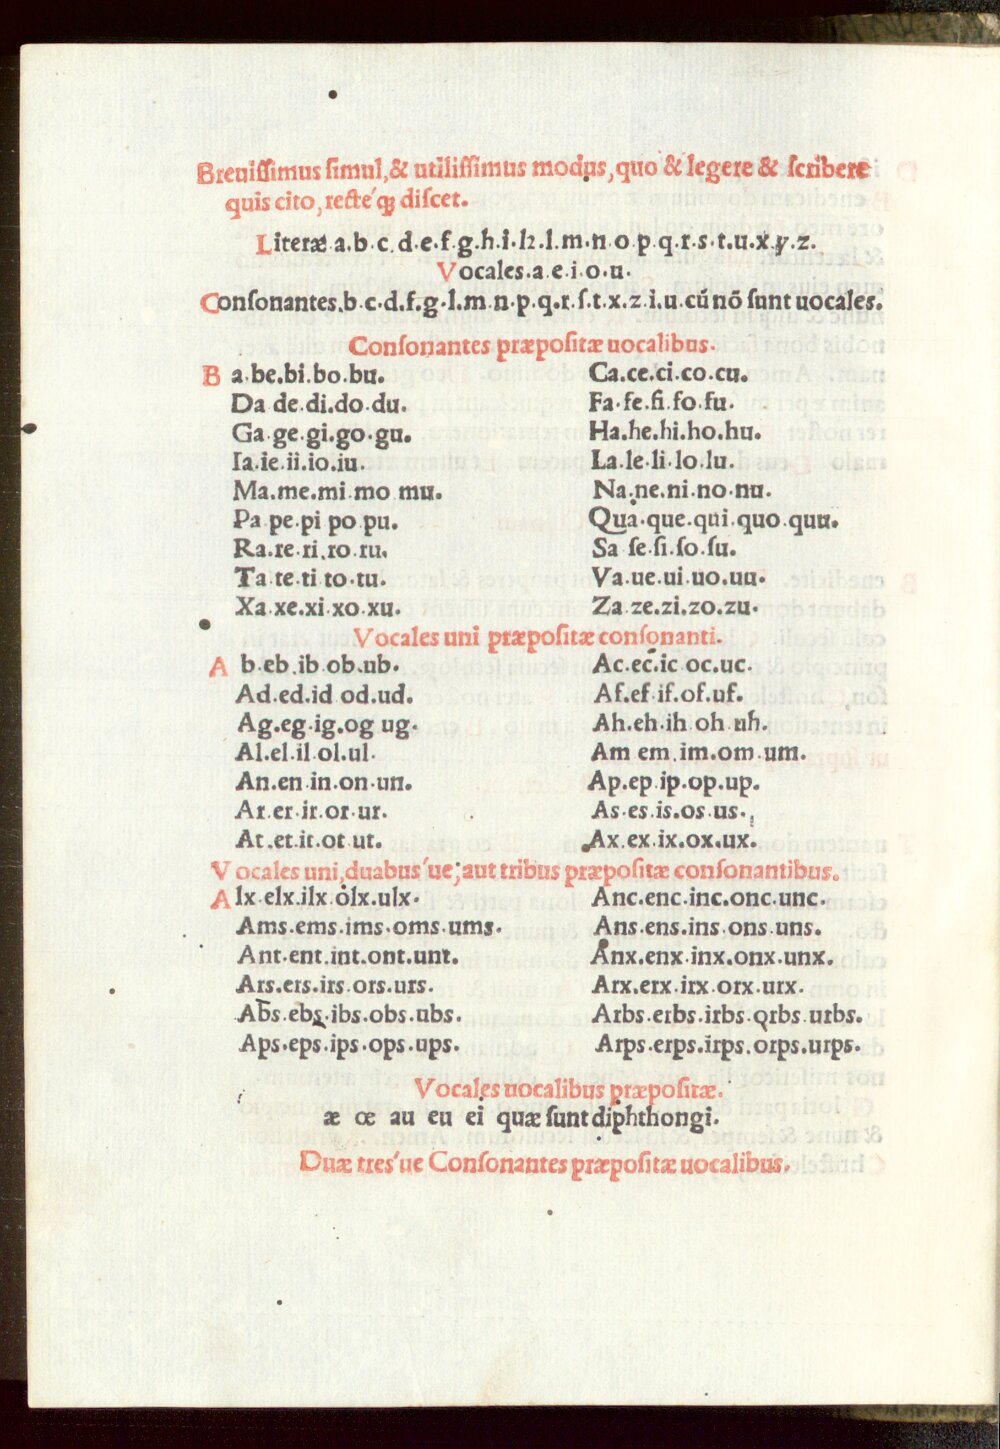 Breuiſſimus ſimul,& utiliſſimus modus, quo & legere & ſcribere
quis cito, recte´q; diſcet.
Literæ a.b.c.d.e.f.g.h.i.k.l.m.n o p.q.r.s.t.u.x.y.z.
Vocales.a.e.i.o.u.
Conſonantes.b.c.d.f.g.l.m.n.p.q.r.ſ.t.x.z.i.u.cũ nõ ſunt uocales.
Conſonantes præpoſitæ uocalibus.
B a.be.bi.bo.bu.
Ca.ce.ci.co.cu.
Da de.di.do.du.
Fa.fe.fi.fo.fu.
Ga.ge.gi.go.gu.
Ha.he.hi.ho.hu.
Ia.ie.ii.io.iu.
La.le.li.lo.lu.
Ma.me.mi.mo mu.
Na.ne.ni.no.nu.
Pa pe.pi po pu.
Qua.que.qui.quo.quu.
Ra.re.ri.ro.ru.
Sa ſe.ſi.ſo.ſu.
Ta te.ti to.tu.
Va.ue.ui.uo.uu.
Xa.xe.xi.xo xu.
Za ze.zi.zo.zu.
Vocales uni præpoſitæ conſonanti.
A b.eb.ib ob.ub.
Ac.ec.ic oc.uc.
Ad.ed.id od.ud.
Af.ef.if.of.uf.
Ag.eg.ig.og ug.
Ah.eh.ih oh uh.
Al.el.il ol.ul.
Am em im.om um.
An.en in.on.un.
Ap.ep ip.op.up.
Ar.er.ir.or.ur.
As.es.is.os us.
At.et.it.ot ut.
Ax.ex.ix.ox.ux.
Vocales uni,duabus´ue,aut tribus præpoſitæ conſonantibus.
A lx.elx.ilx olx.ulx.
Anc.enc.inc.onc.unc.
Ams.ems.ims.oms.ums.
Ans.ens.ins ons uns.
Ant.ent.int.ont.unt.
Anx.enx.inx.onx.unx.
Ars.ers.irs ors.urs.
Arx.erx.irx orx urx.
Abs.ebs.ibs.obs.ubs.
Arbs.erbs.irbs.orbs urbs.
Aps.eps.ips.ops.ups.
Arps.erps.irps.orps.urps.
Vocales uocalibus præpoſitæ.
æ œ au eu ei quæ ſunt diphthongi.
Duæ tres´ue Conſonantes præpoſitæ uocalibus.